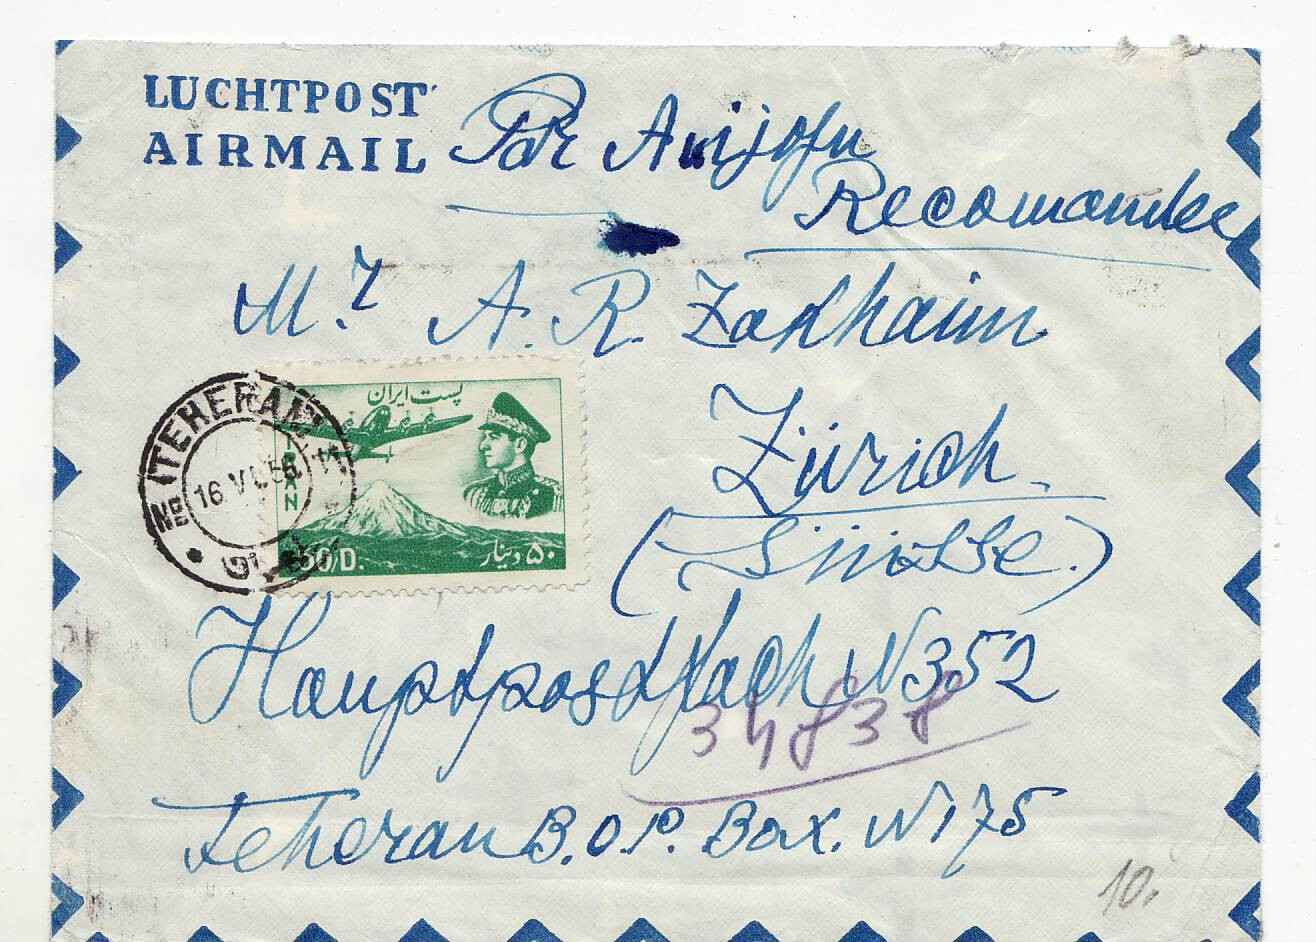 LUCHTPOST
AIRMAIL
Par Avijofn
Recomandee
M.r A. R. Zakhaim
Zürich.
پست ایران
IRAN
50/D.
۵۰ دینار
TEHERAN
16 VI 56 11
Hauptpostfach N 352
34838
Teheran B.O.P. Box. N 175
10.